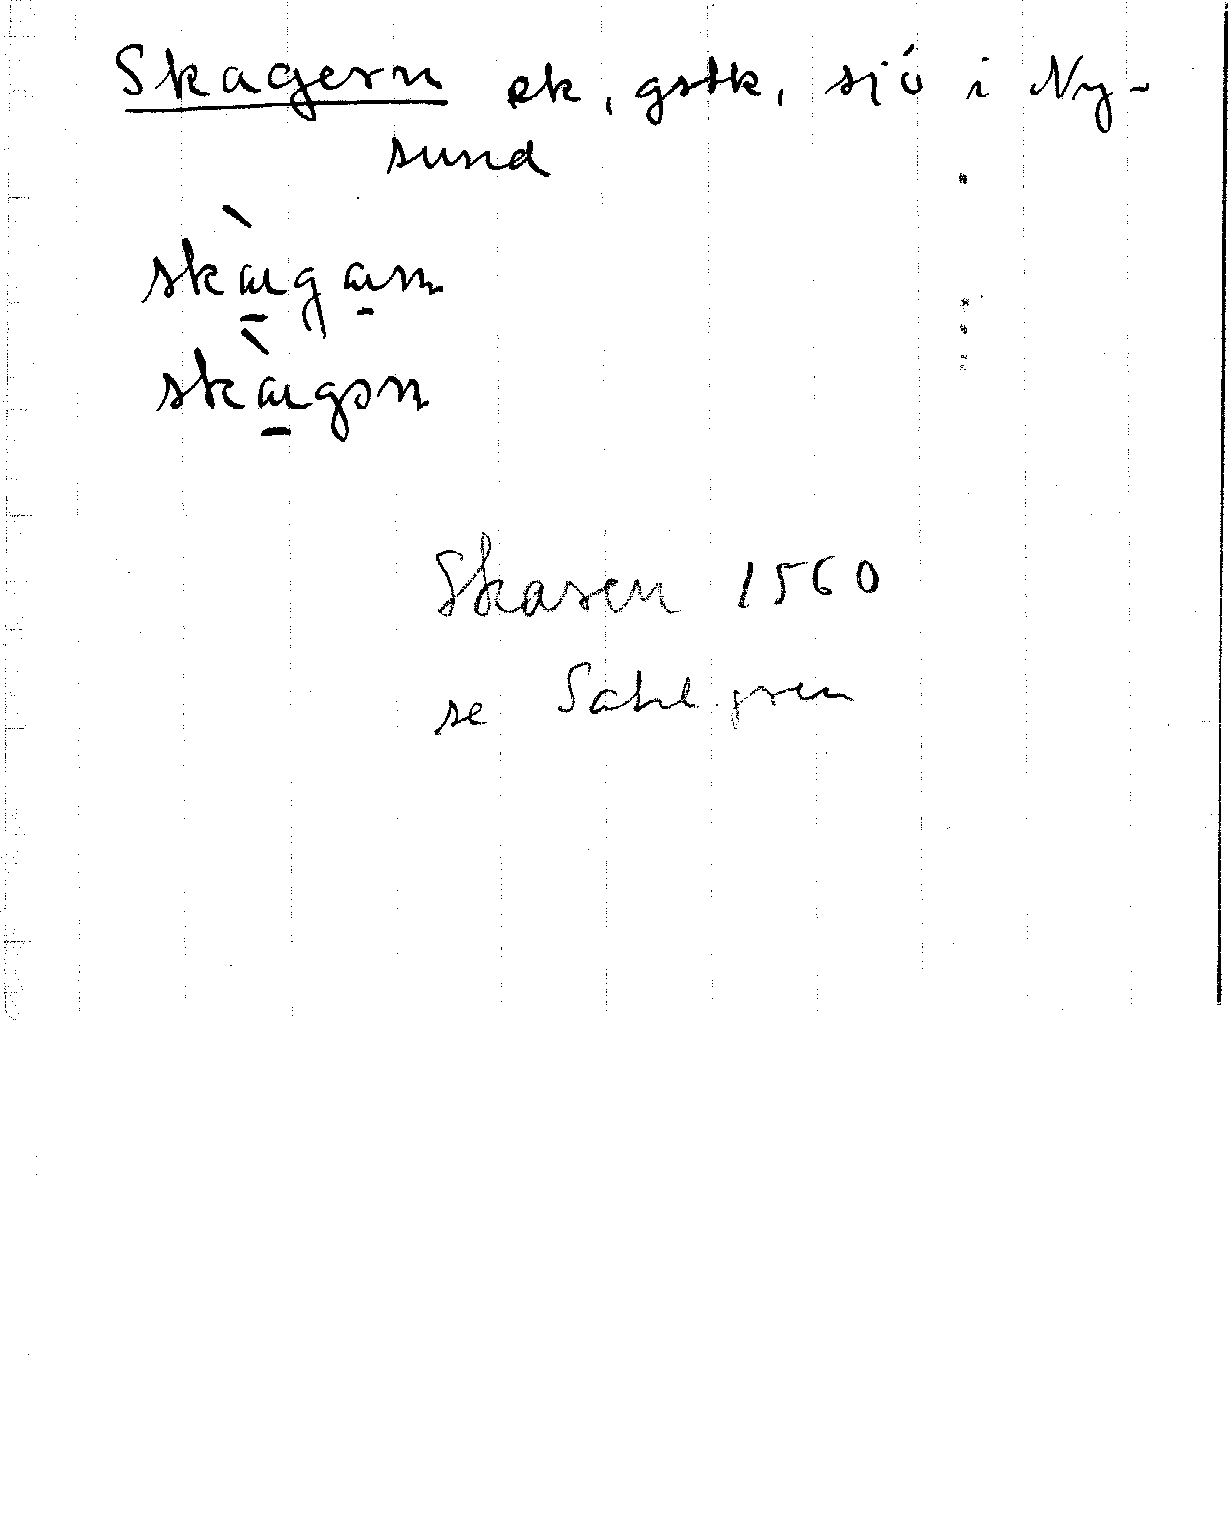 Skagern ek, gstk, sjö i Ny-
sund
skàgan
skàgən
Skasen 1560
se Sahlgren